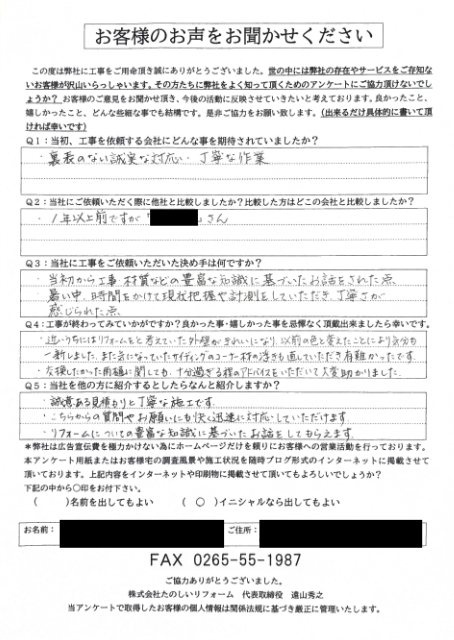 お客様のお声をお聞かせください
この度は弊社に工事をご用命頂き誠にありがとうございました。世の中には弊社の存在やサービスをご存知ない
お客様が沢山いらっしゃいます。その方たちに弊社をよく知って頂くためのアンケートにご協力頂けないでし
ょうか？ お客様のご意見をお聞かせ頂き、今後の活動に反映させていきたいと考えております。良かったこと、
嬉しかったこと、どんな些細な事でも結構です。是非ご協力をお願い致します。（出来るだけ具体的に書いて頂
ければ幸いです）
Q１：当初、工事を依頼する会社にどんな事を期待されていましたか？
・裏表のない誠実な対応・丁寧な作業
Q２：当社にご依頼いただく際に他社と比較しましたか？比較した方はどこの会社と比較しましたか？
・1年以上前ですが「 」さん
Q３：当社に工事をご依頼いただいた決め手は何ですか？
・当初から工事・材質などの豊富な知識に基づいたお話をされた点、
暑い中、時間をかけて現状把握や計測をしていただき、丁寧さが
感じられた点、
Q４：工事が終わってみていかがですか？良かった事・嬉しかった事を忌憚なく頂戴出来ましたら幸いです。
・近いうちにはリフォームをと考えていた外壁がきれいになり、以前の色と変えたことにより気分も
一新しました。また気になっていたサイディングのコーナー材の浮きも直していただき有難かったです。
・交換したかった雨樋に関しても、十分過ぎる程のアドバイスをいただいて大変助かりました。
Q５：当社を他の方に紹介するとしたらなんと紹介しますか？
・誠意ある見積もりと丁寧な施工です。
・こちらからの質問やお願いにも快く迅速に対応していただけます
・リフォームについての豊富な知識に基づいたお話をしてもらえます。
＊弊社は広告宣伝費を極力かけない為にホームページだけを頼りにお客様への営業活動を行っております。
本アンケート用紙またはお客様宅の調査風景や施工状況を随時ブログ形式のインターネットに掲載させて
頂いております。上記内容をインターネットや印刷物に掲載させて頂いてもよろしいでしょうか？
下記の中から○印をお付下さい。
（　　）名前を出してもよい　（ ○ ）イニシャルなら出してもよい
お名前： ご住所：
FAX 0265-55-1987
ご協力ありがとうございました。
株式会社たのしいリフォーム　代表取締役　遠山秀之
当アンケートで取得したお客様の個人情報は関係法規に基づき厳正に管理いたします。